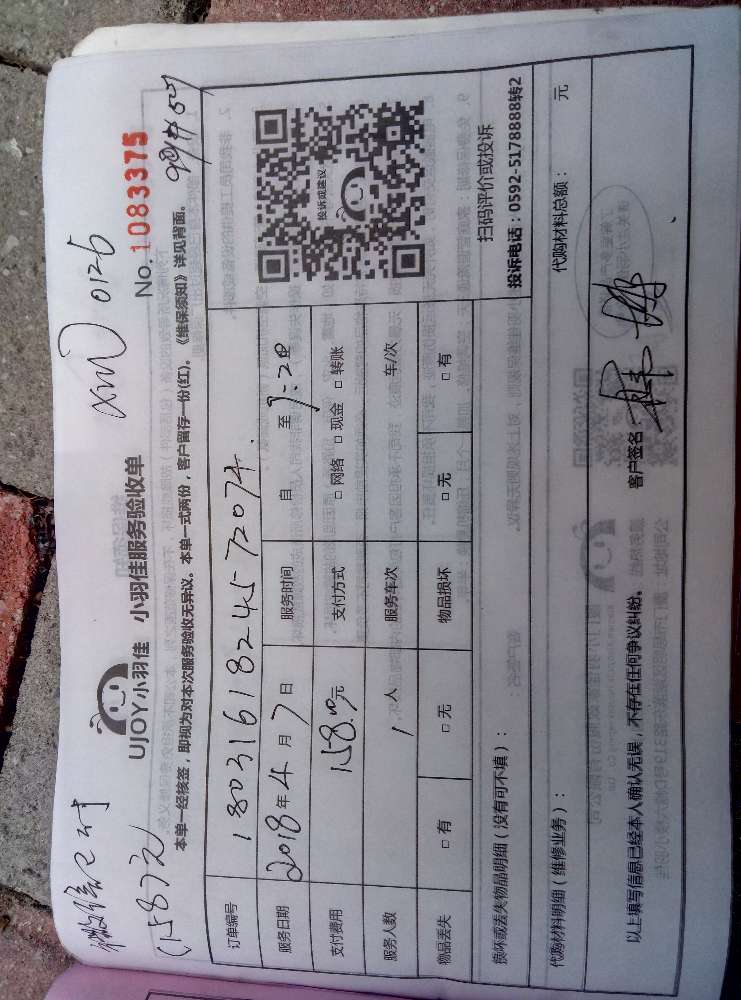 微信已付
(158元)
xm 0126
UJOY小羽佳 小羽佳服务验收单
No. 1083375
本单一经核签，即视为对本次服务验收无异议。本单一式两份，客户留存一份(红)。《维保须知》详见背面。
订单编号 180316182457207
服务日期 2018年4月7日 服务时间 自 至
支付费用 158.00元 支付方式 □网络 □现金 □转账
服务人数 1人 服务车次 车/次
物品丢失 □有 □无 物品损坏 □无 □有
投诉或建议
扫码评价或投诉
投诉电话：0592-5178888转2
损坏或丢失物品明细（没有可不填）：
代购材料明细（维修业务）： 代购材料总额： 元
以上填写信息已经本人确认无误，不存在任何争议纠纷。 客户签名：